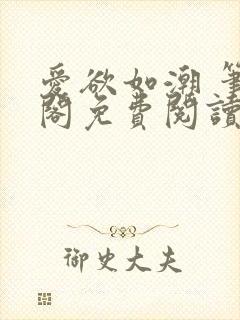 愛欲如潮 筆
閣免費閱讀
御史大夫